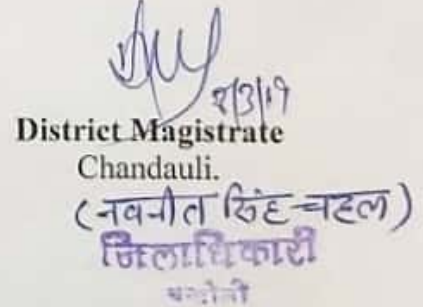 8/3/19
District Magistrate
Chandauli.
(नवनीत सिंह चहल)
जिलाधिकारी
चन्दौली